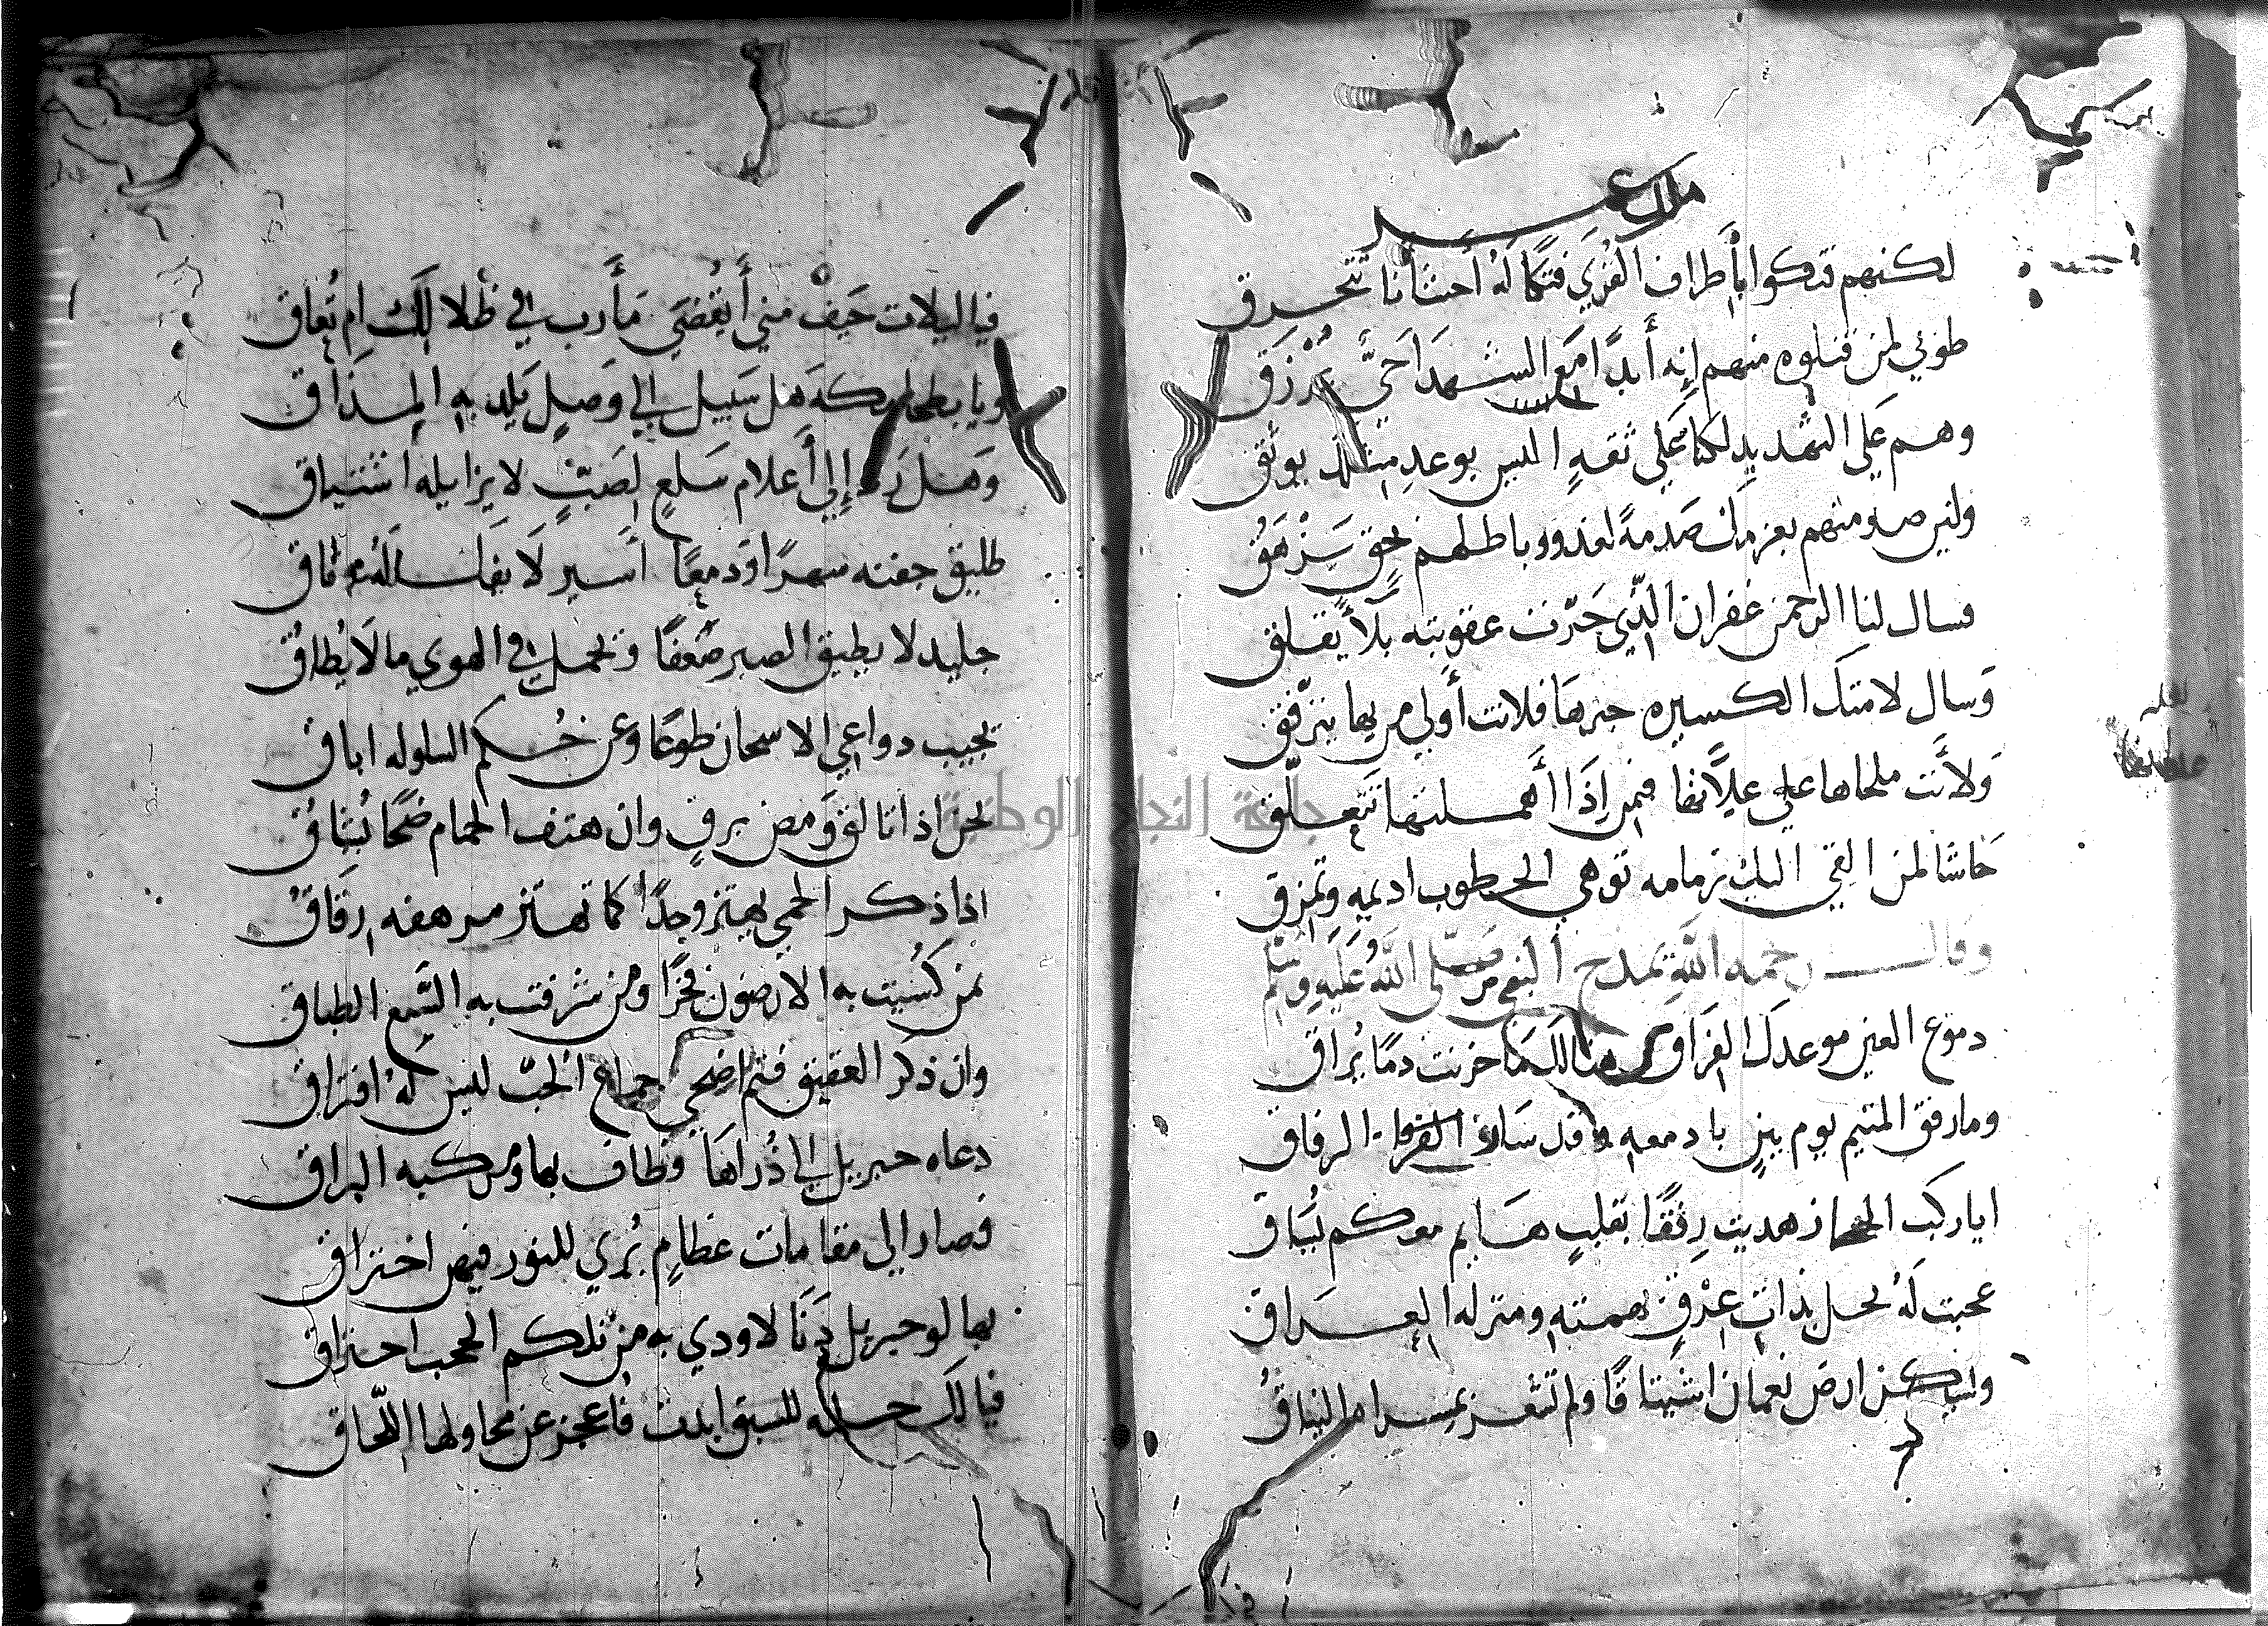 لكنهم فتكوا بأطراف القري فتكا له أحشأنا تتحرق
طوبي لمن قتلوه منهم إنه أبدا مع الشهدا حي يرزق
وهم علي التهديد لكنا علي ثقة اليس بوعد مثلك يوثق
منهم بعزمك صدمة لغدوو باطلهم بحق سيزهق
فسال لنا الرحمن غفران الذي حررت عقوبته بلأ يقلق
وسال لامتك الكسيره جبرها فلانت أولي من بها يترفق
ولأنت ملجاها علي علاتها فبمن إذا أهملتها تتعلق
حاشا لمن القي اليك زمامه توهي الخطوب اديمه وتمزق
وقال رحمه الله يمدح النبي صلى الله عليه وسلم
دموع العين موعدك الفراق هنالك ما خزنت دما يراق
ومارفق المتيم يوم بين بادمعه وقد سارت الرفاق
اياركب الحجاز هديت رفقا بقلب هايم معكم يساق
عجبت له يحل بذات عرق بهمته ومنزله العراق
ارض نعمان اشتياقا ولم تشعز بمسراه النياق
فيا ليلات خيف مني أيقضي مأرب في ظلالك ام تعاق
ويا بطحا مكة هل سبيل إلي وصل يلد به المذاق
وهل إلي أعلام سلع لصب لا يزايله اشتياق
طليق جفنه سهرا ودمعا اسير لا يفك له وثاق
جليد لا يطيق الصبر ضعفا ويحمل في الهوي ما لا يطاق
يجيب دواعي الاسحان طوعا وعن حكم السلو له اباق
يحن اذا تالق ومض برق وان هتف الحمام ضحا يشاق
اذا ذكر الحمي يهتز وجدا كما تهتز مرهفه رقاق
بمن كسيت به الارضون فخرا ومن شرفت به السبع الطباق
وان ذكر العقيق فثم اضحي جماع الحب ليس له افتراق
دعاه جبريل الي ذراها وطاف بها ومركبه البراق
فصار الي مقامات عظام يري للنور فيهن اختراق
بها لو جبريل دنا لاودي به من تلكم الحجب احتراق
فيالك للسبق ابدت فاعجز عن محاولها اللحاق
جامعة النجاح الوطنية